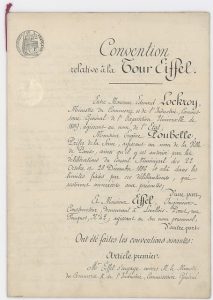 Convention
relative à la Tour Eiffel.
Entre Monsieur Edouard Lockroy,
Ministre du Commerce et de l'Industrie, Commissaire
Général de l'Exposition Universelle de
1889, agissant au nom de l'Etat
Monsieur Eugène Poubelle,
Préfet de la Seine, agissant au nom de la Ville
de Paris, ainsi qu'il y est autorisé par les
délibérations du Conseil Municipal des 22
Octobre et 28 Décembre 1886 et cela dans les
limites fixées par ces délibérations qui
resteront annexées aux présentes;
D'une part,
Et Monsieur Eiffel, Ingénieur
Constructeur demeurant à Levallois-Perret, rue
Fouquet, N° 42, agissant en son nom personnel,
D'autre part;
Ont été faites les conventions suivantes:
Article premier.
Mr. Eiffel s'engage envers Mr. le Ministre
du Commerce et de l'Industrie, Commissaire Général